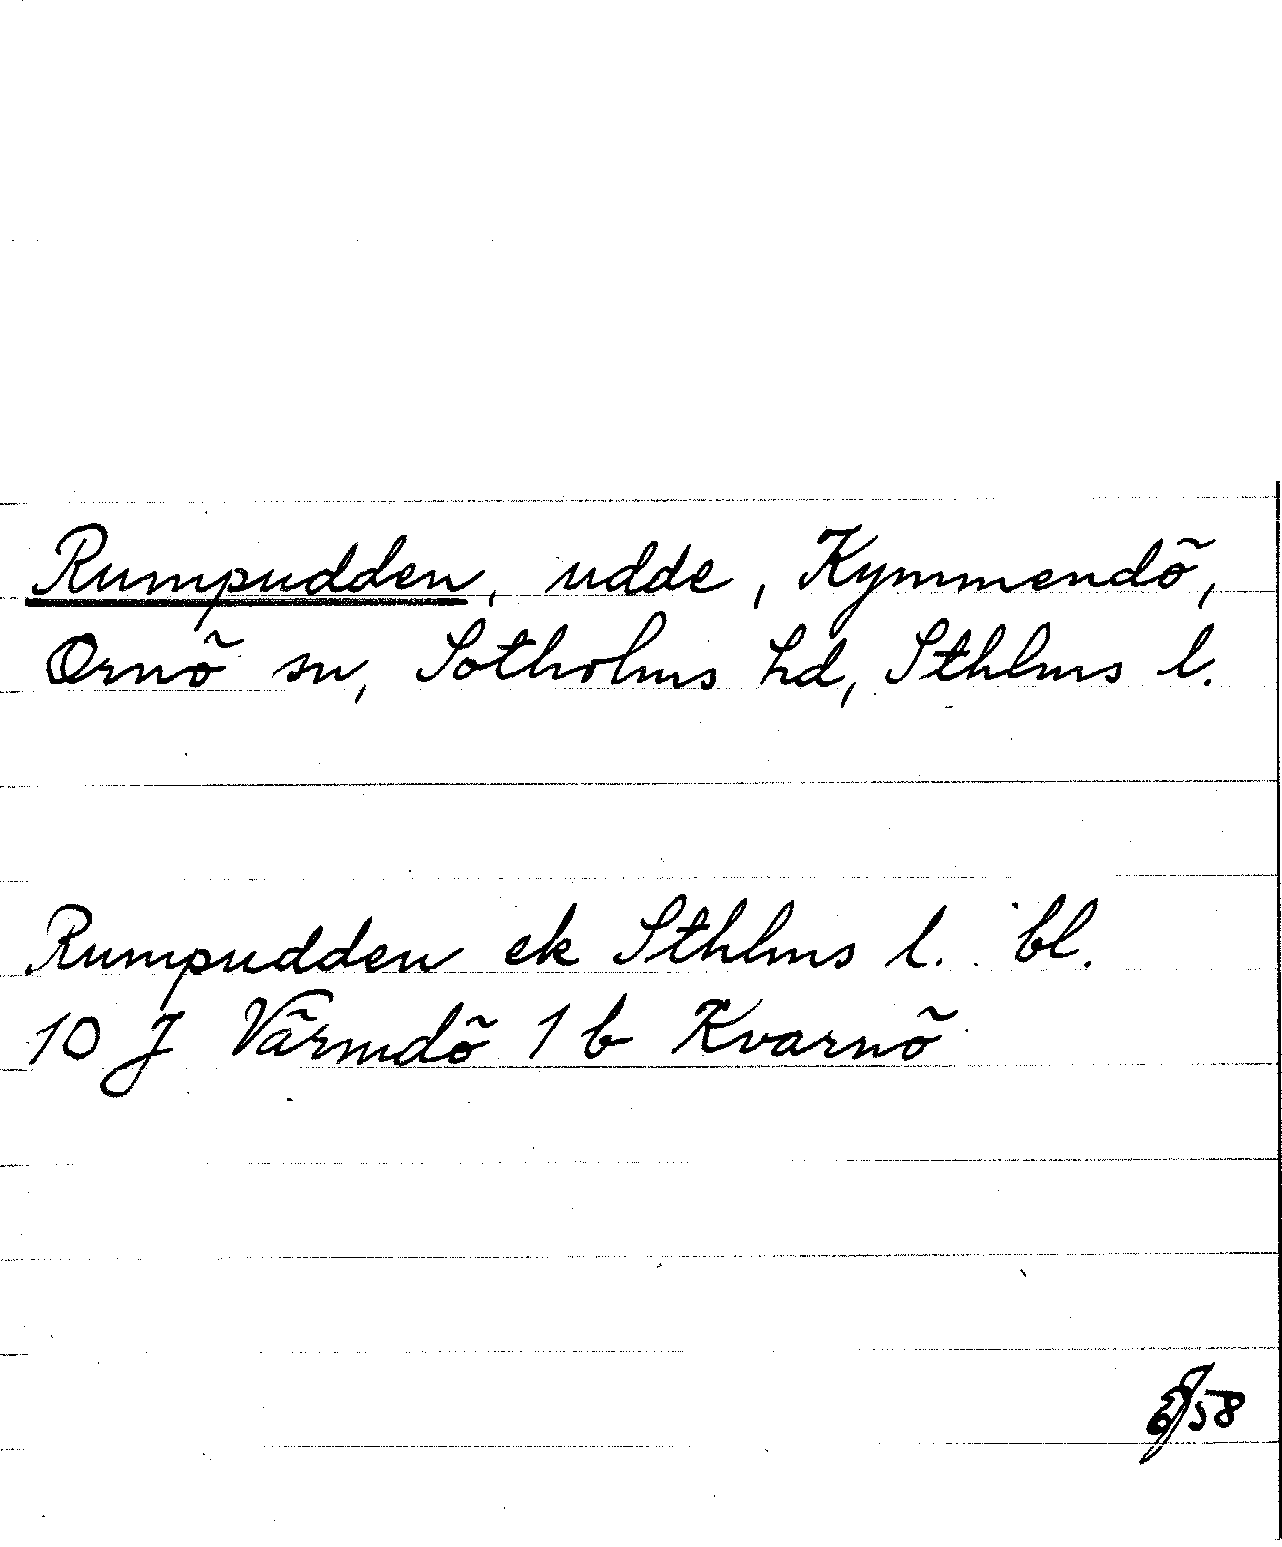 Rumpudden, udde, Kymmendö,
Ornö sn, Sotholms hd, Sthlms l.
Rumpudden ek Sthlms l. bl.
10 J Värmdö 1 b Kvarnö
58